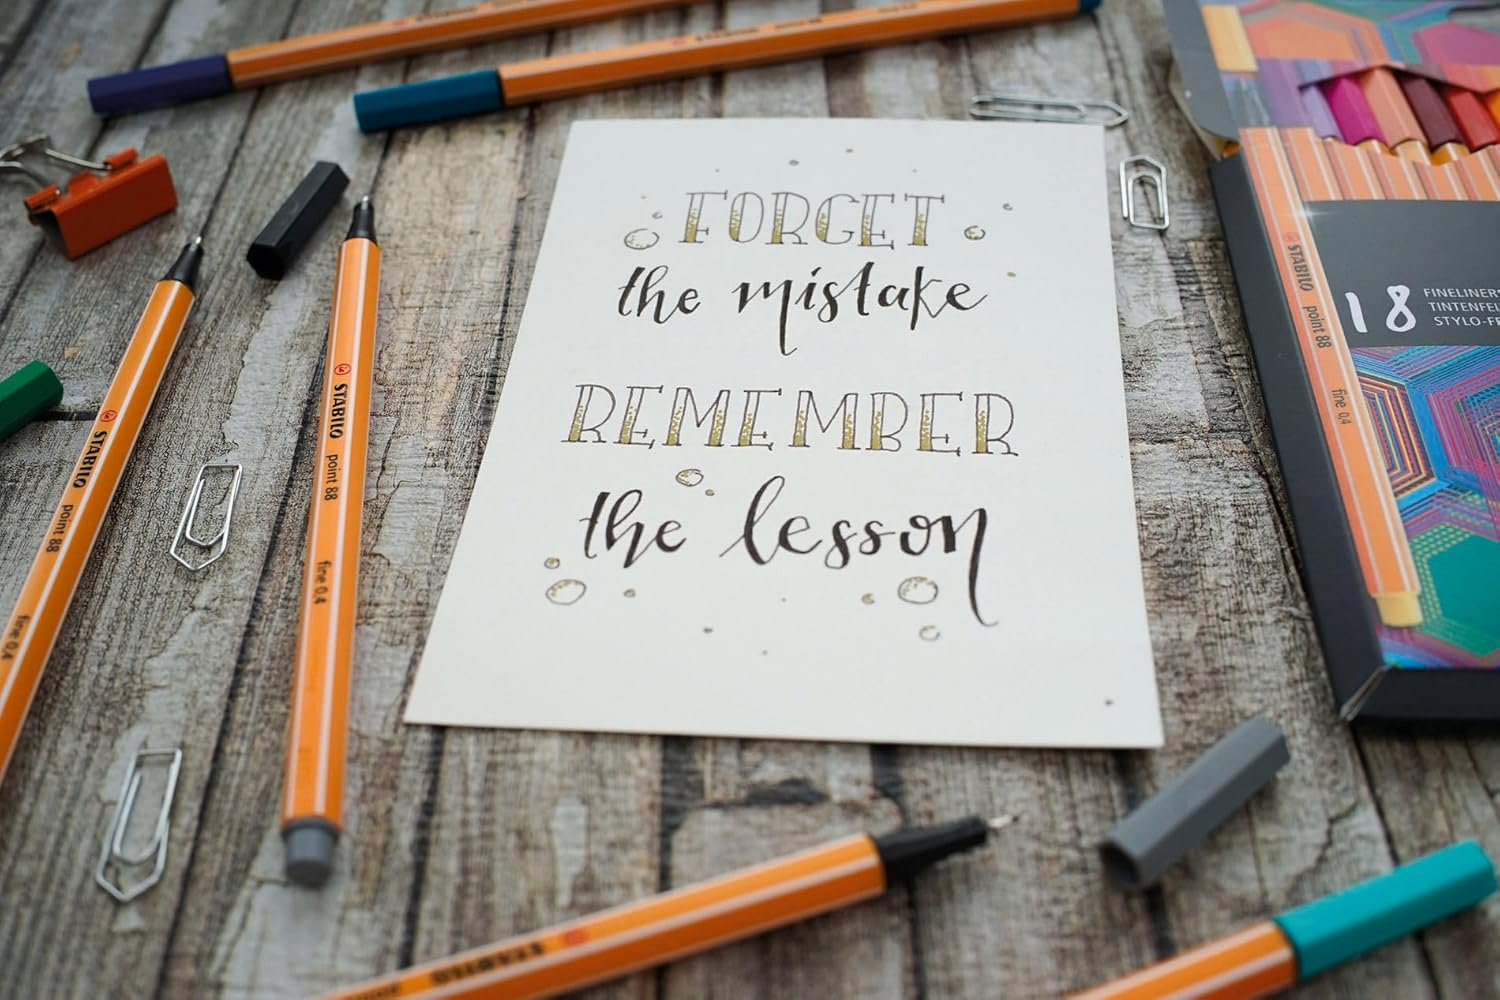 FORGET
the mistake
REMEMBER
the lesson
STABILO point 88 fine 0,4
STABILO point 88 fine 0,4
STABILO point 88 fine 0,4
18
FINELINER